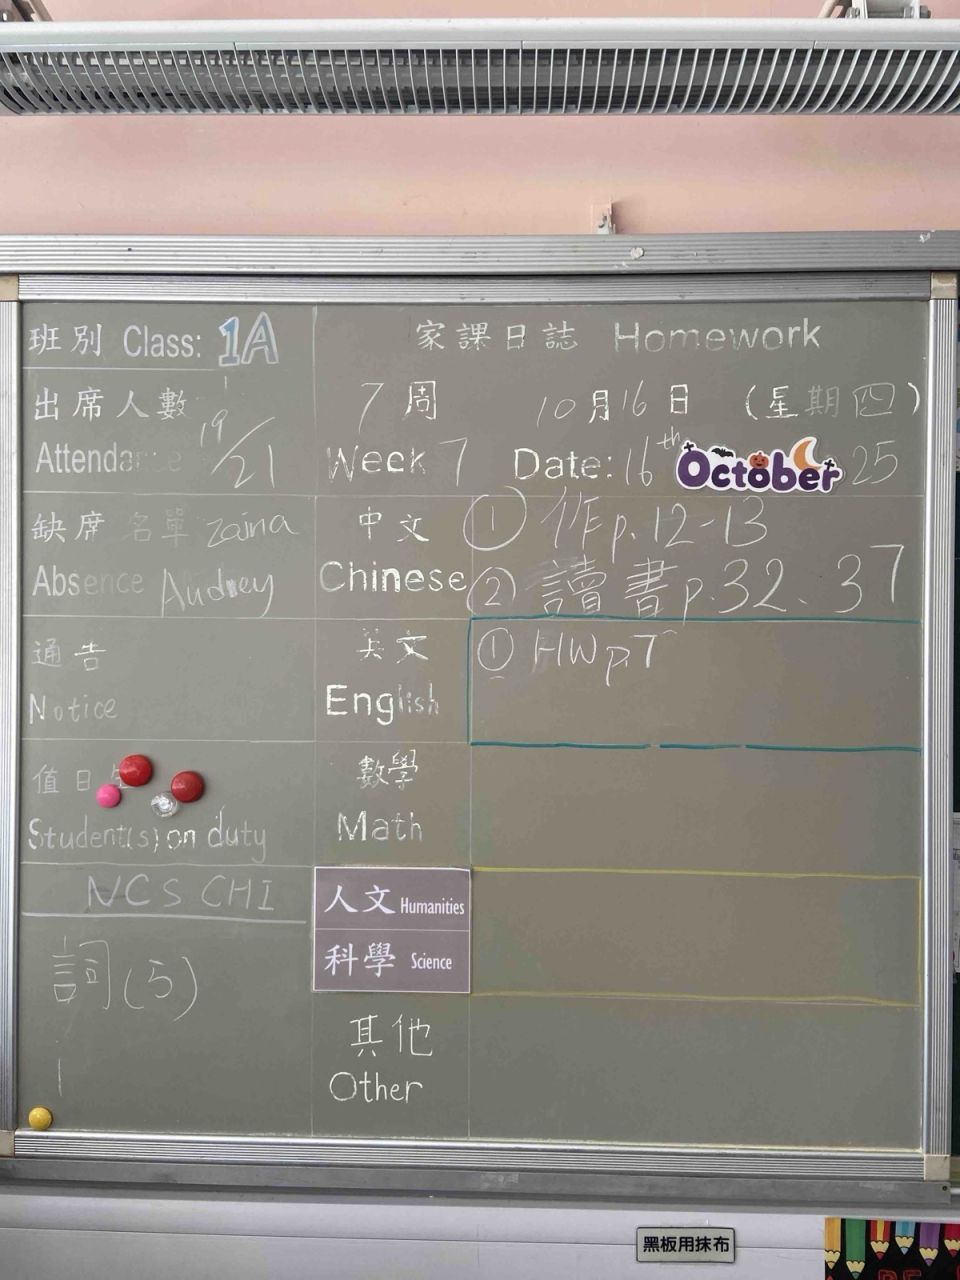 班別 Class: 1A
出席人數 19/21
Attendance
缺席名單 Zaina
Absence Audrey
通告
Notice
值日生
Student(s) on duty
NCS CHI
詞(5)
家課日誌 Homework
7周 10月16日 (星期四)
Week 7 Date: 16th October 25
中文 ① 作p.12-13
Chinese ② 讀書p.32、37
英文 ① HW p.7
English
數學
Math
人文 Humanities
科學 Science
其他
Other
黑板用抹布